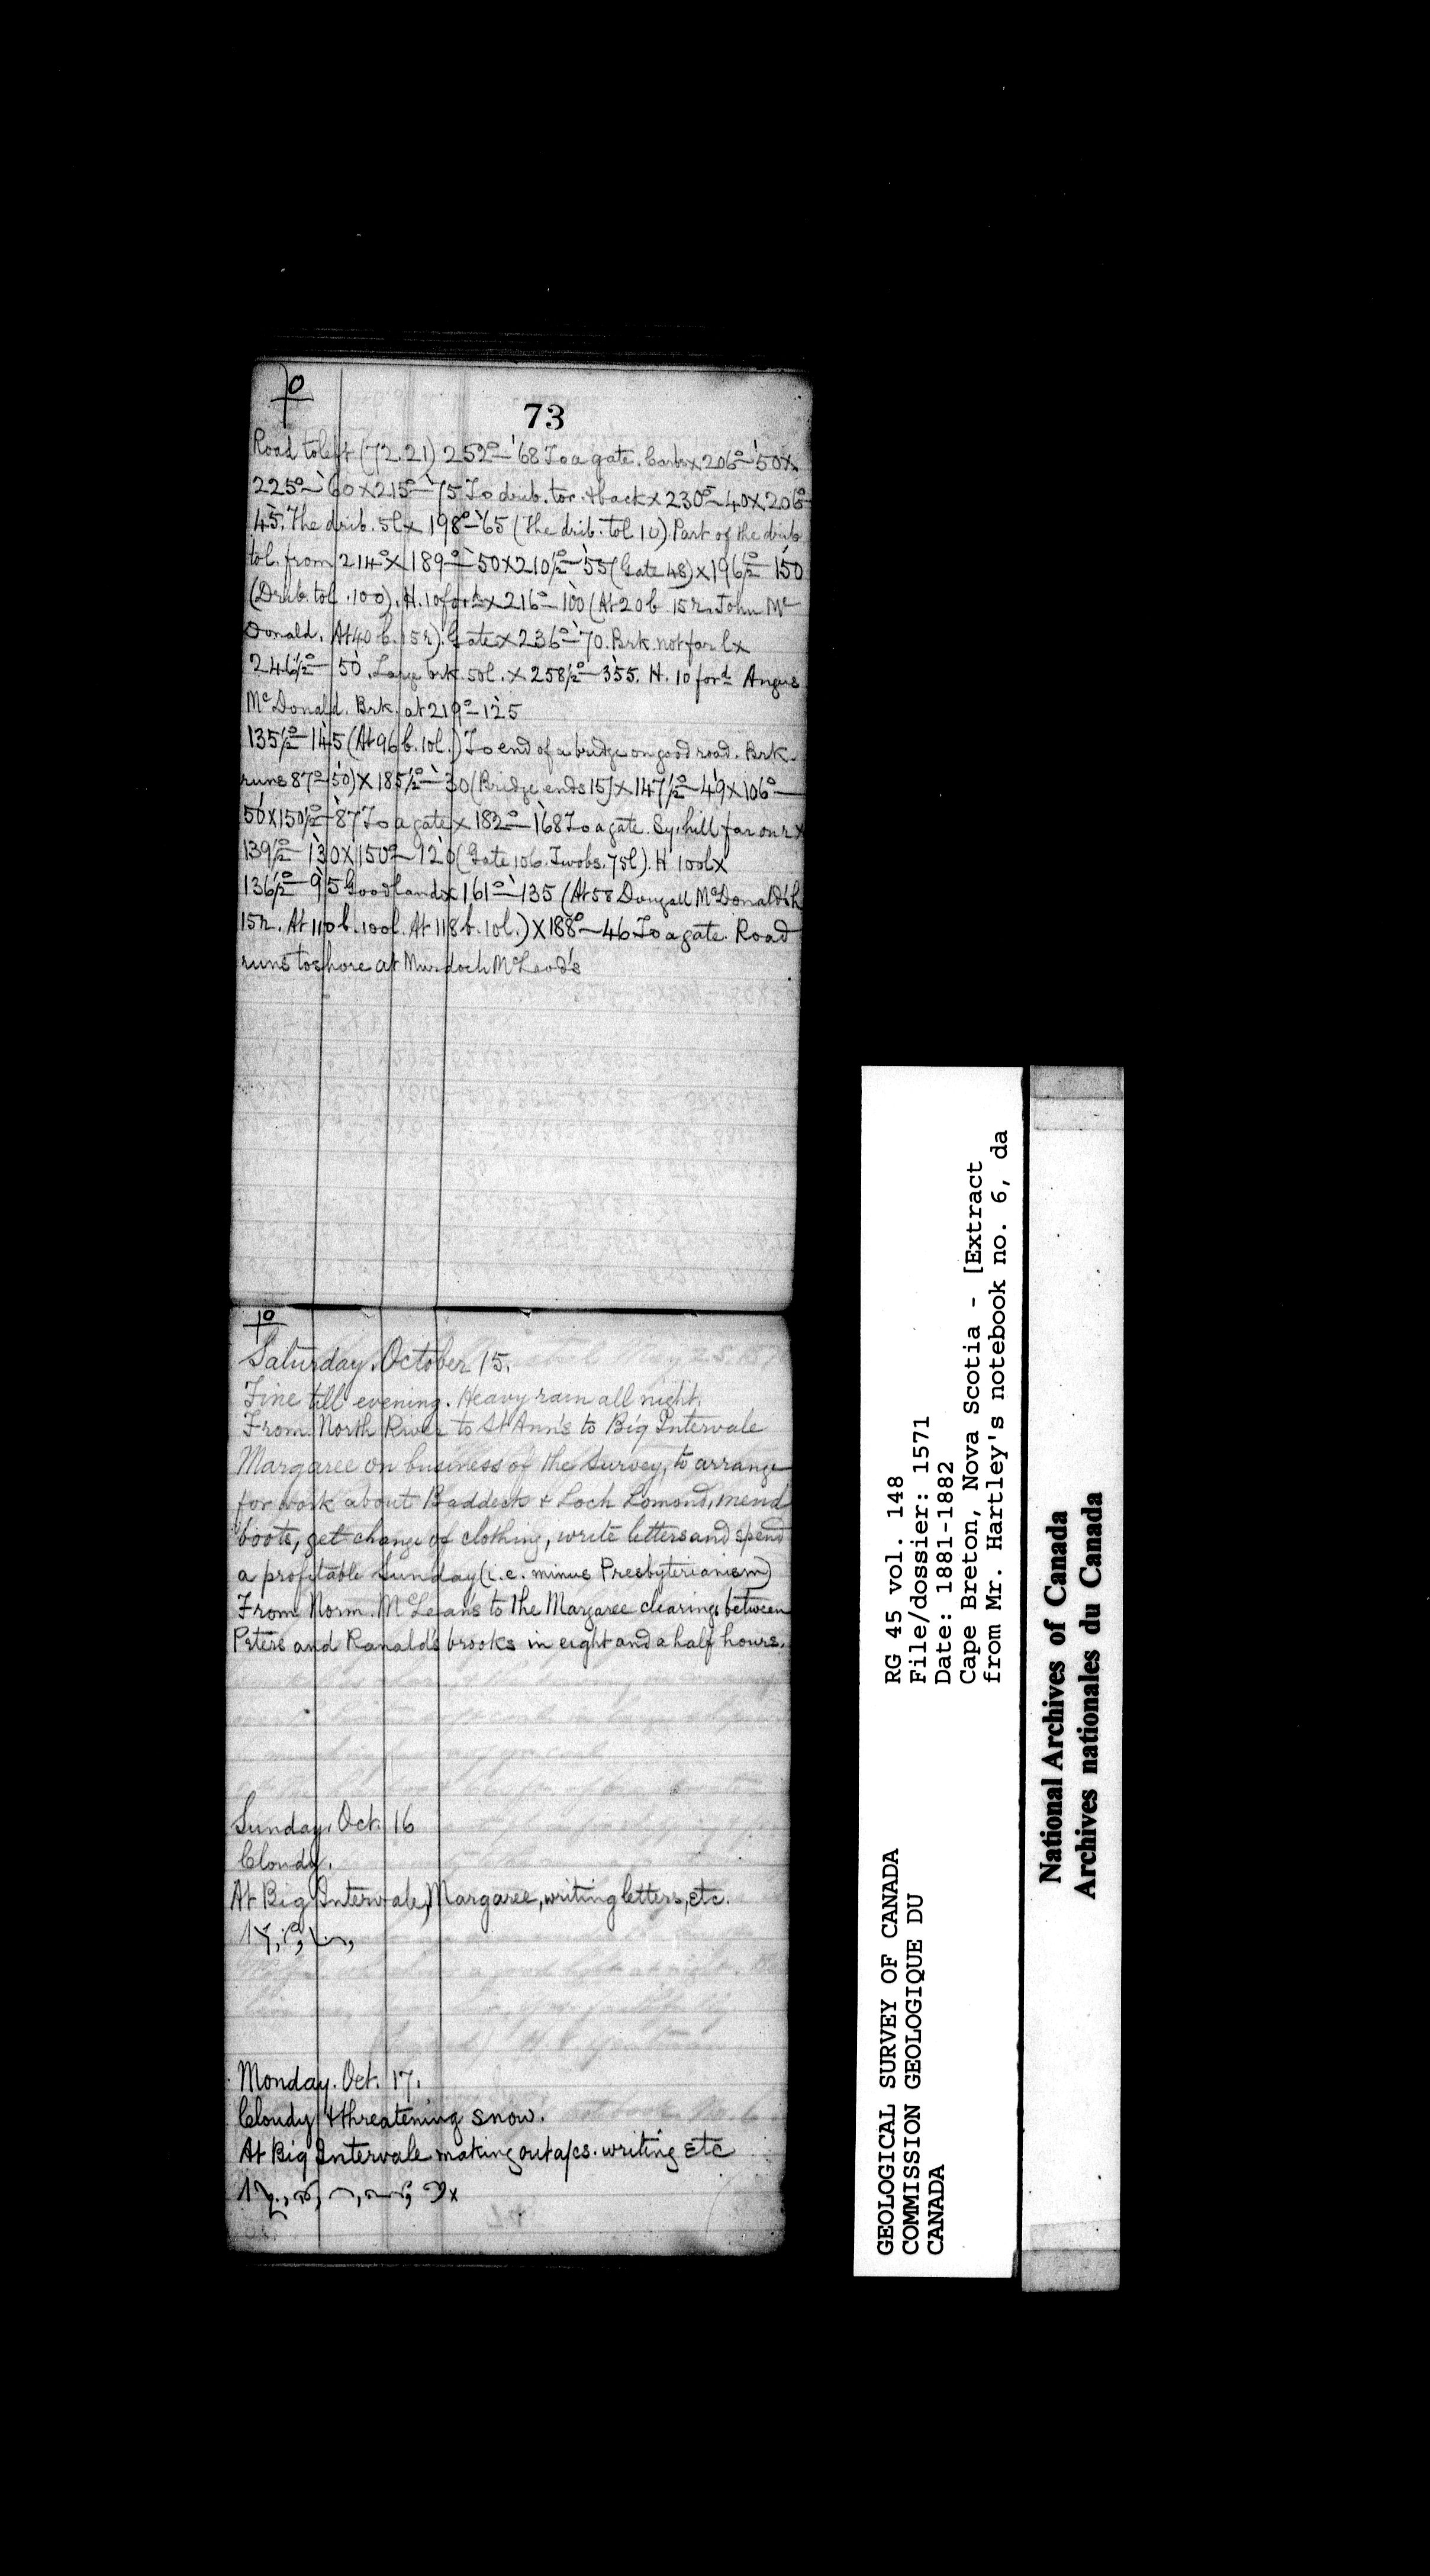 73
Road to left (72.21) 252°—68 To a gate. Barbs x 206°—50 x
225°—60 x 215°—75 To drib. tor. & back x 230°—40 x 206°—
45. The drib. 5l x 198°—65 (The drib. to l 10). Part of the drib
to l. from 214° x 189°—50 x 210½°—55 (Gate 48) x 196½°—150
(Drib. to l. 100). H. 10 ford x 216°—100 (At 20 b. 15 r. John Mc
Donald. At 40 b. 15 r). Gate x 236°—70. Brk. not far l x
246½°—50. Large brk. 50l. x 258½°—355. H. 10 ford Angus
McDonald. Brk. at 219°—125
135½°—145 (At 96 b. 10l.) To end of a bridge on good road. Brk.
runs 87°—50) x 185½°—30 (Bridge ends 15) x 147½°—49 x 106°—
50 x 150½°—87 To a gate x 182°—168 To a gate. Sy. hill far on r x
139½°—130 x 150°—120 (Gate 106. Two bs. 75l). H 100l x
136½°—95 Good land x 161°—135 (At 58 Dougall McDonald's h
15r. At 110 b. 100l. At 118 b. 10l.) x 188°—46 To a gate. Road
runs to shore at Murdoch McLeod's
Saturday. October 15.
Fine till evening. Heavy rain all night.
From North River to St Ann's to Big Intervale
Margaree on business of the Survey, to arrange
for work about Baddeck & Loch Lomond, mend
boots, get change of clothing, write letters and spend
a profitable Sunday (i.e. minus Presbyterianism)
From Norm. McLeans to the Margaree clearings between
Peters and Ranald's brooks in eight and a half hours.
Sunday. Oct. 16
Cloudy.
At Big Intervale, Margaree, writing letters, etc.
Monday. Oct. 17.
Cloudy & threatening snow.
At Big Intervale making out a/cs. writing etc
GEOLOGICAL SURVEY OF CANADA
COMMISSION GEOLOGIQUE DU
CANADA
RG 45 vol. 148
File/dossier: 1571
Date: 1881-1882
Cape Breton, Nova Scotia - [Extract
from Mr. Hartley's notebook no. 6, da
National Archives of Canada
Archives nationales du Canada